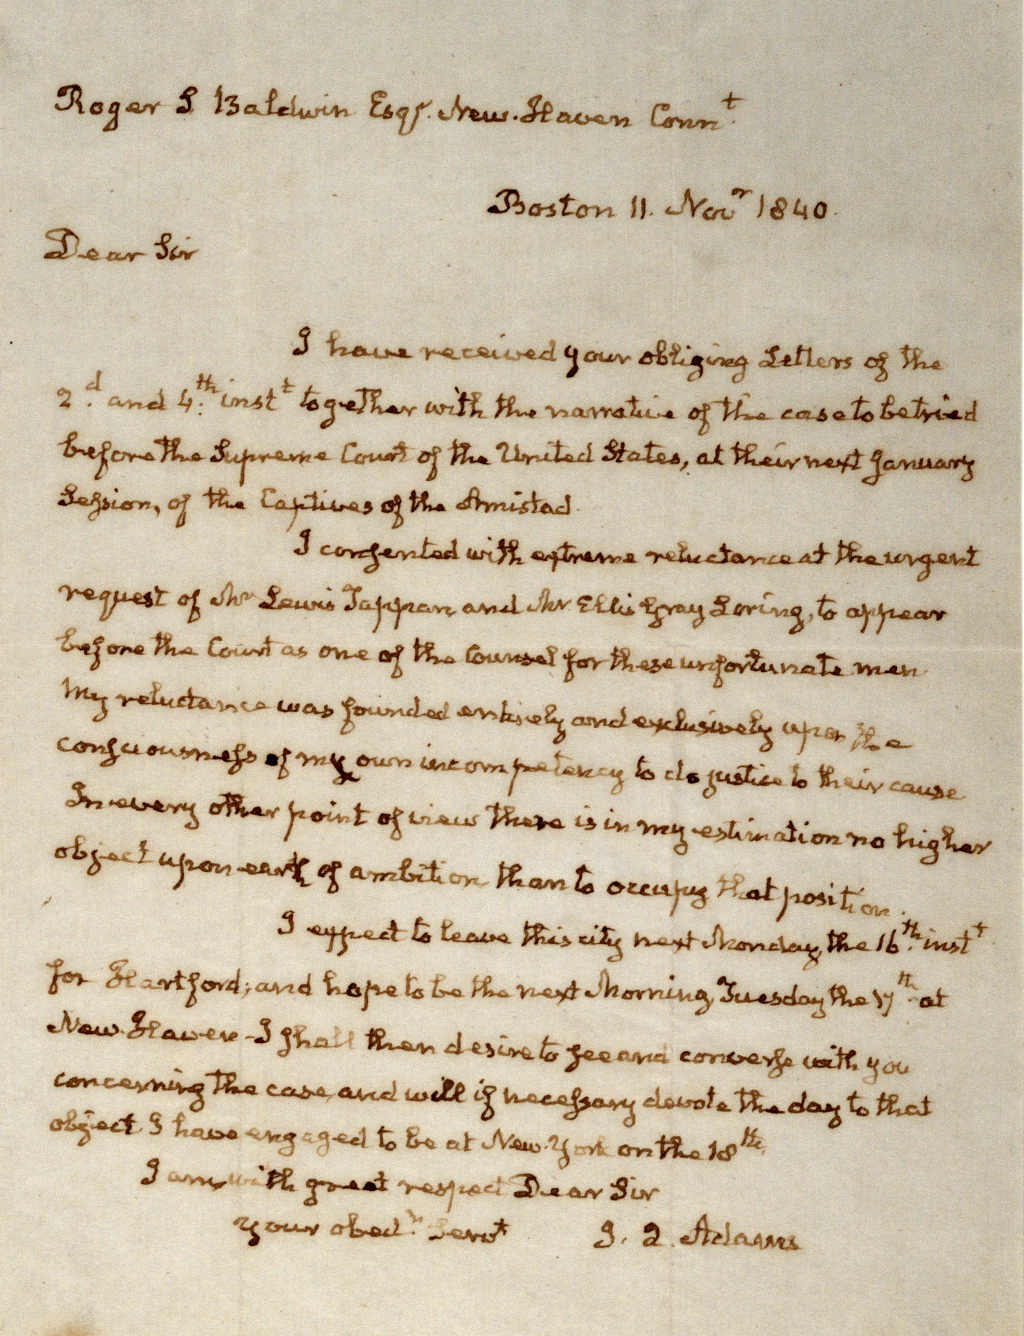 Roger S Baldwin Esqr. New-Haven Connt.
Boston 11. Novr 1840.
Dear Sir
I have received your obliging Letters of the
2d. and 4th. instt together with the narrative of the case to be tried
before the Supreme Court of the United States, at their next January
Session, of the Captives of the Amistad.
I consented with extreme reluctance at the urgent
request of Mr Lewis Tappan, and Mr Ellis Gray Loring, to appear
before the Court as one of the Counsel for these unfortunate men
My reluctance was founded entirely and exclusively upon the
consciousness of my own incompetency to do justice to their cause
In every other point of view there is in my estimation no higher
object upon earth of ambition than to occupy that position.
I expect to leave this city next Monday, the 16th. instt
for Hartford; and hope to be the next Morning, Tuesday the 17th. at
New-Haven - I shall then desire to see and converse with you
concerning the case, and will if necessary devote the day to that
object. I have engaged to be at New-York on the 18th.
I am, with great respect Dear Sir
your obedt. Servt J. Q. Adams